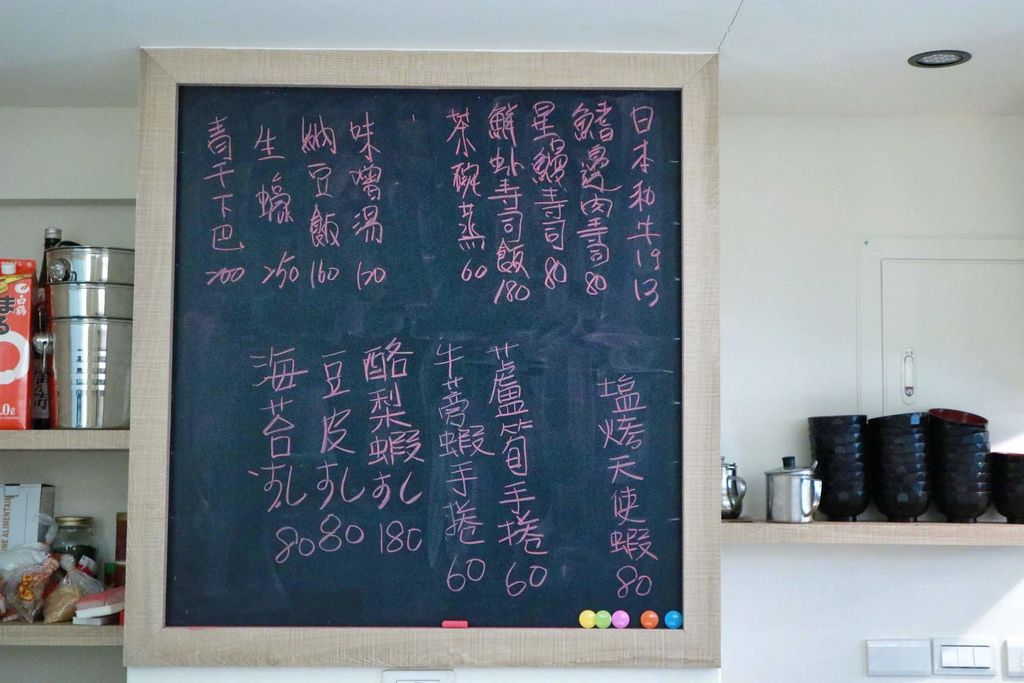 日本和牛1913
鰭邊肉壽司80
星鰻壽司80
鮮蚵壽司飯180
茶碗蒸60
味噌湯120
納豆飯160
生蠔250
青干下巴200
塩烤天使蝦80
蘆筍手捲60
牛蒡蝦手捲60
酪梨蝦すし180
豆皮すし80
海苔すし80
白鶴
まる